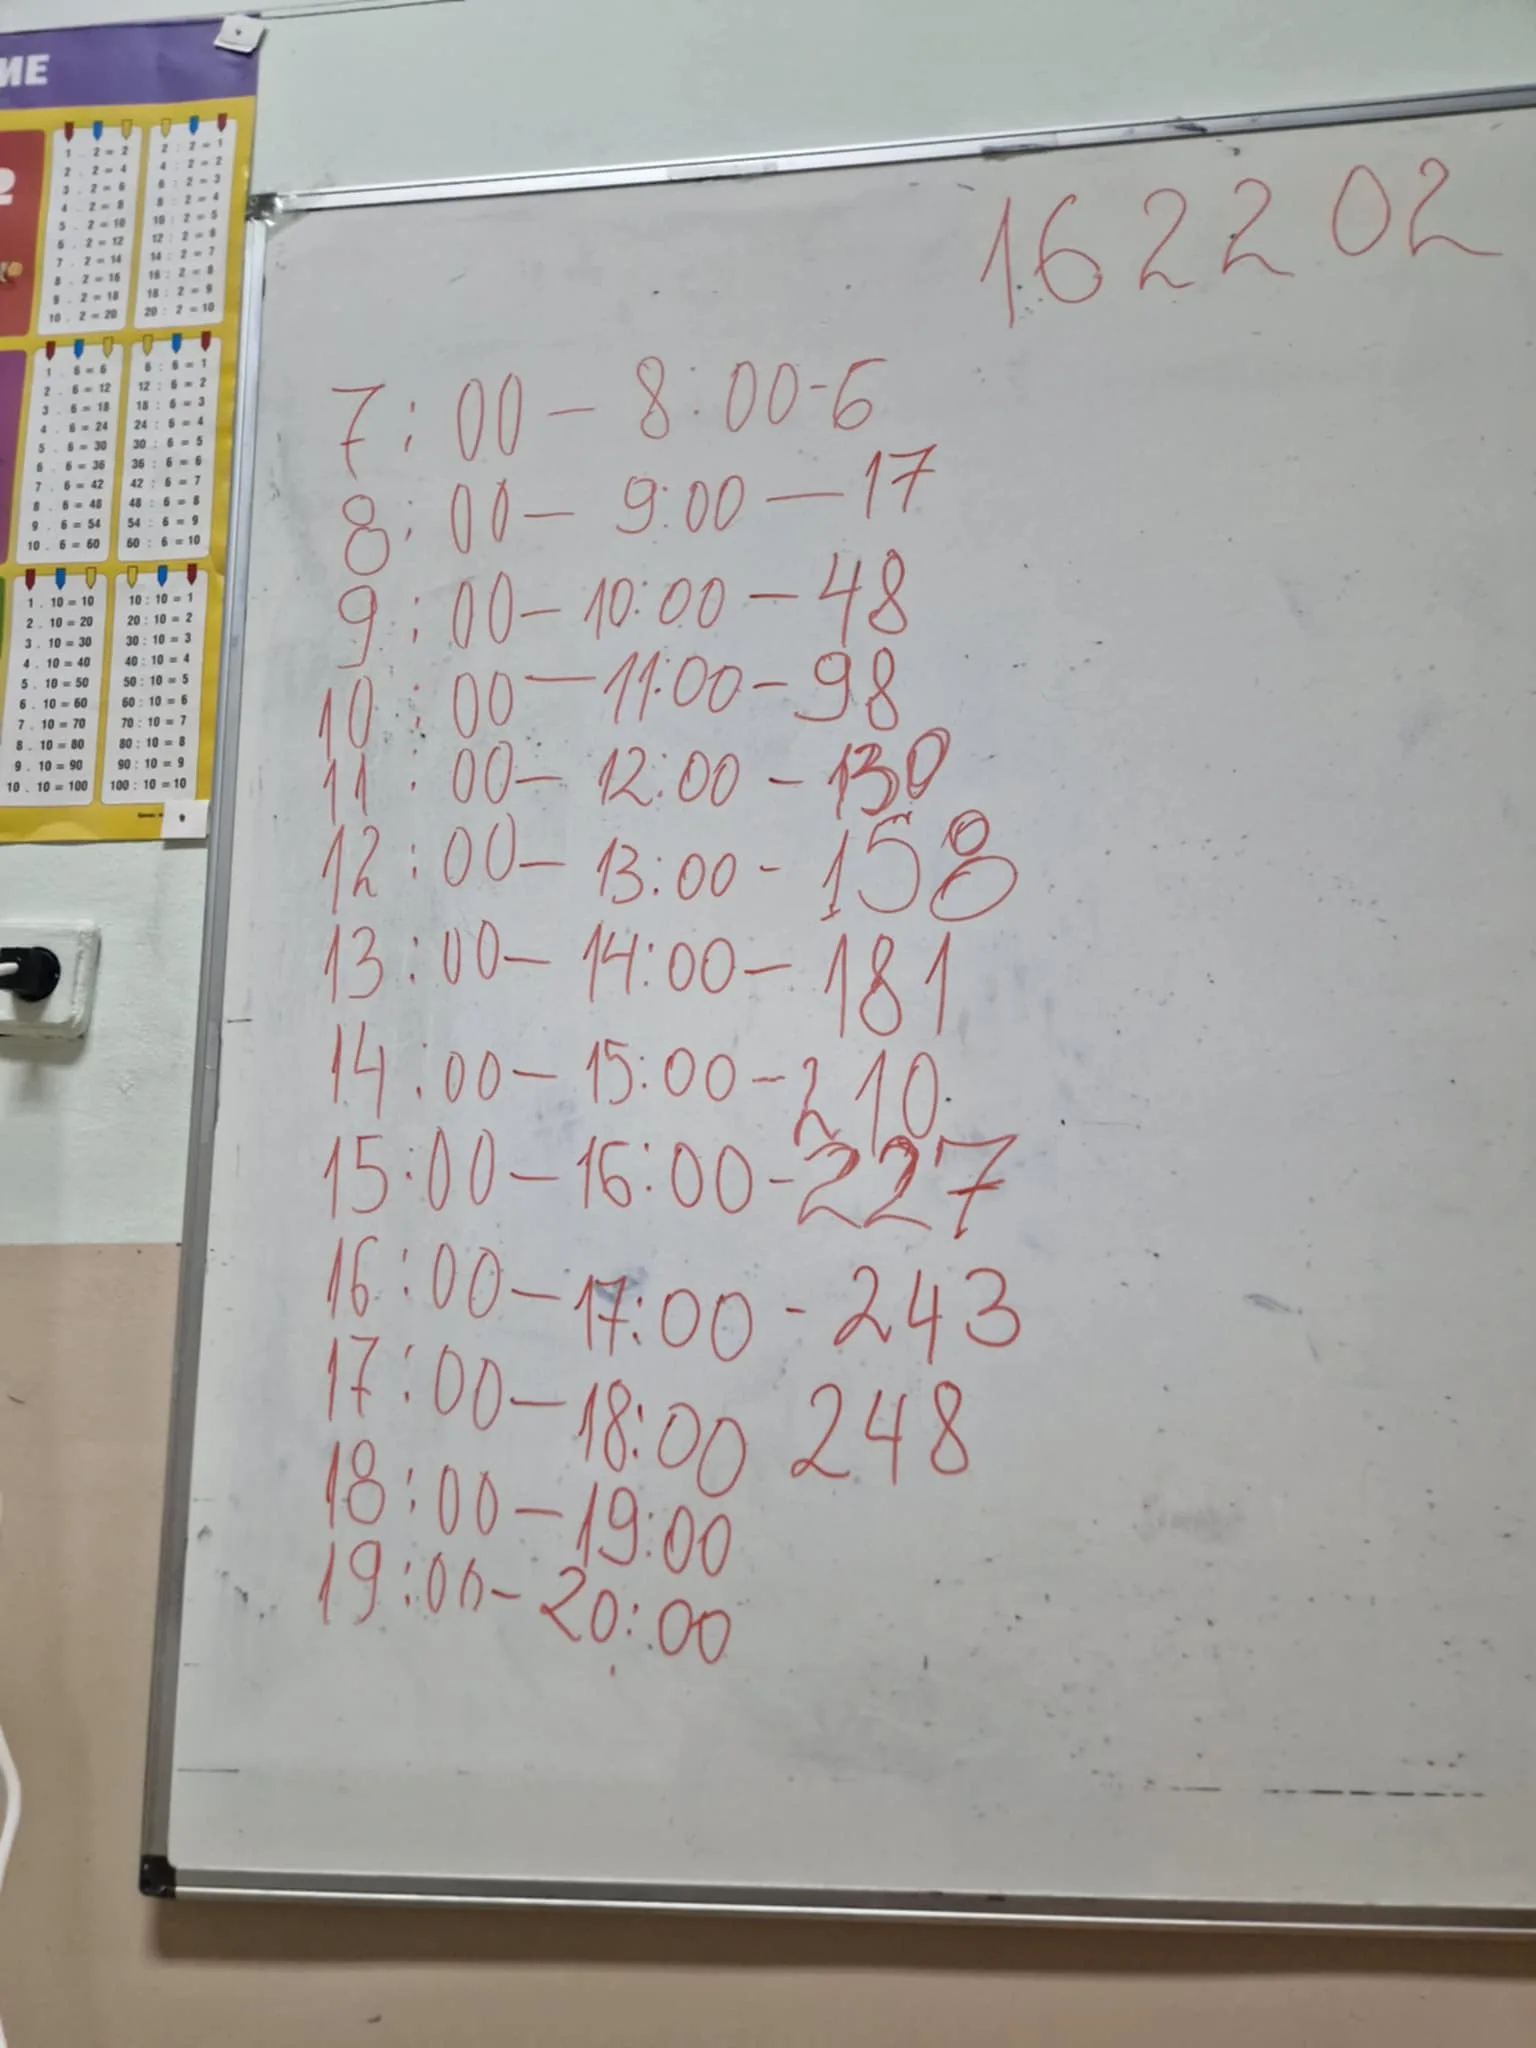 ИЕ
2
1 . 2 = 2
2 . 2 = 4
3 . 2 = 6
4 . 2 = 8
5 . 2 = 10
6 . 2 = 12
7 . 2 = 14
8 . 2 = 16
9 . 2 = 18
10 . 2 = 20
2 : 2 = 1
4 : 2 = 2
6 : 2 = 3
8 : 2 = 4
10 : 2 = 5
12 : 2 = 6
14 : 2 = 7
16 : 2 = 8
18 : 2 = 9
20 : 2 = 10
1 . 6 = 6
2 . 6 = 12
3 . 6 = 18
4 . 6 = 24
5 . 6 = 30
6 . 6 = 36
7 . 6 = 42
8 . 6 = 48
9 . 6 = 54
10 . 6 = 60
6 : 6 = 1
12 : 6 = 2
18 : 6 = 3
24 : 6 = 4
30 : 6 = 5
36 : 6 = 6
42 : 6 = 7
48 : 6 = 8
54 : 6 = 9
60 : 6 = 10
1 . 10 = 10
2 . 10 = 20
3 . 10 = 30
4 . 10 = 40
5 . 10 = 50
6 . 10 = 60
7 . 10 = 70
8 . 10 = 80
9 . 10 = 90
10 . 10 = 100
10 : 10 = 1
20 : 10 = 2
30 : 10 = 3
40 : 10 = 4
50 : 10 = 5
60 : 10 = 6
70 : 10 = 7
80 : 10 = 8
90 : 10 = 9
100 : 10 = 10
162202
7:00 – 8:00 - 6
8:00 – 9:00 – 17
9:00 – 10:00 – 48
10:00 – 11:00 – 98
11:00 – 12:00 – 130
12:00 – 13:00 - 158
13:00 – 14:00 – 181
14:00 – 15:00 – 210
15:00 – 16:00 - 227
16:00 – 17:00 - 243
17:00 – 18:00 248
18:00 – 19:00
19:00 – 20:00